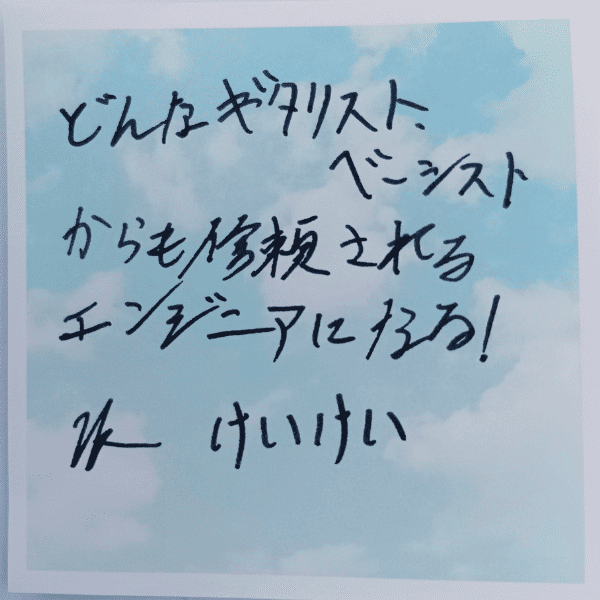 どんなギタリスト、
ベーシスト
からも修頼される
エンジニアになる!
けいけい